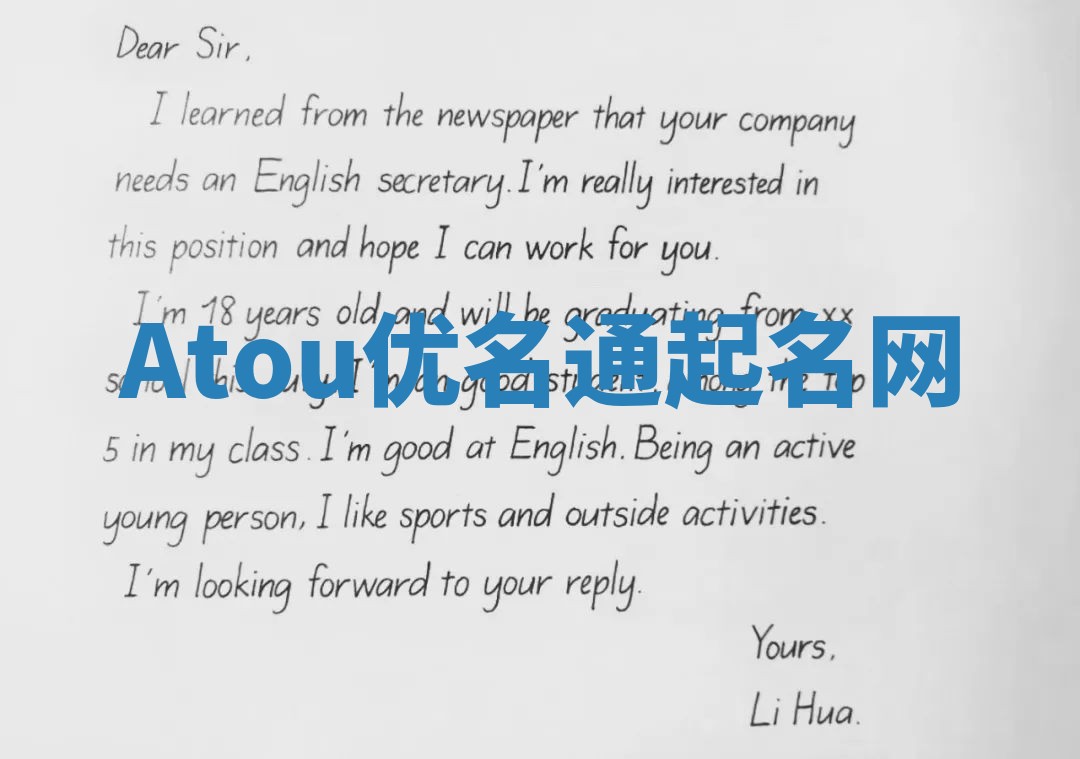 Dear Sir,
I learned from the newspaper that your company
needs an English secretary. I'm really interested in
this position and hope I can work for you.
I'm 18 years old and will be graduating from xx
Atou优名通起名网
school this July. I'm an good student, among the top
5 in my class. I'm good at English. Being an active
young person, I like sports and outside activities.
I'm looking forward to your reply.
Yours,
Li Hua.